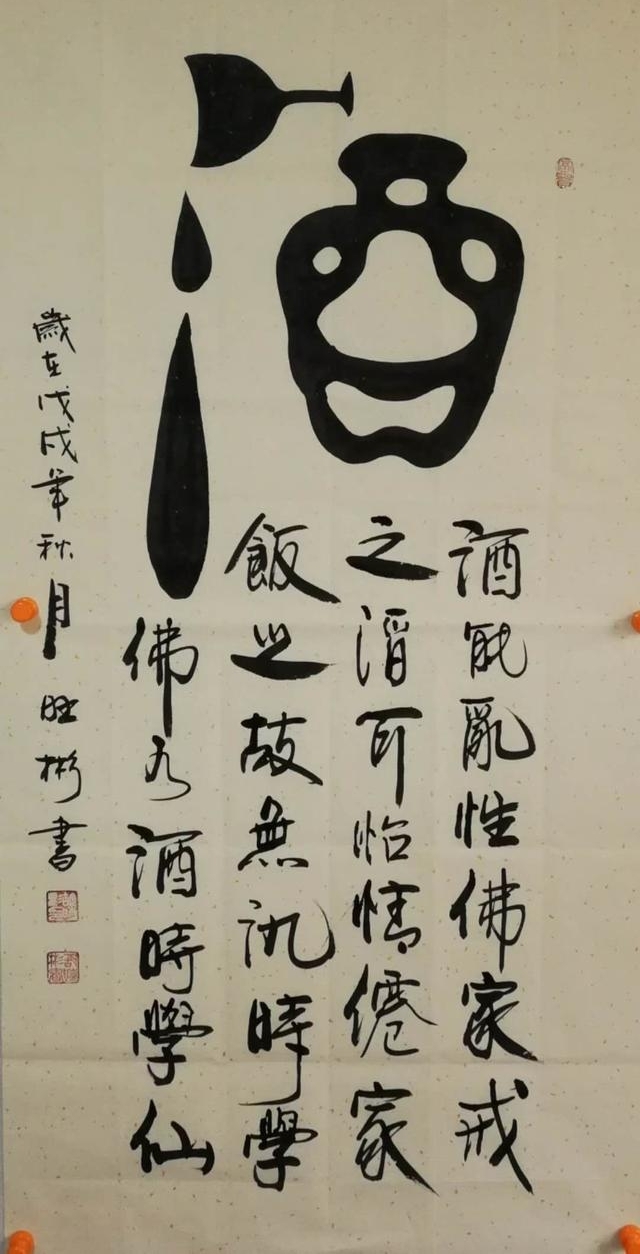 酒
酒能亂性佛家戒
之酒可怡情僊家
飲之故無酒時學
佛有酒時學仙
歲在戊戌年秋月旺彬書